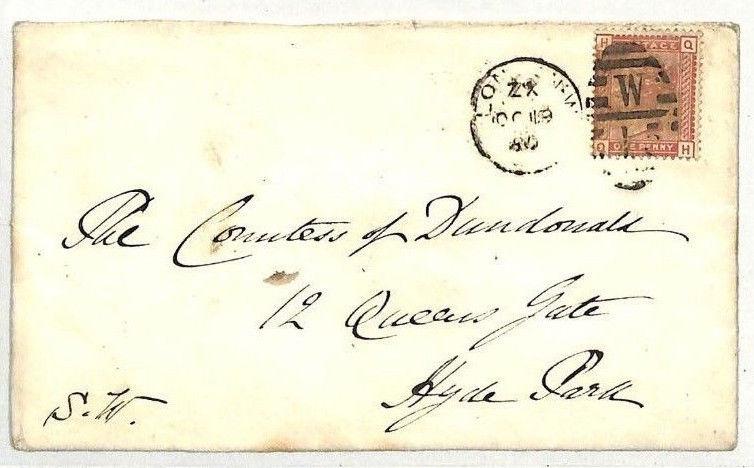 LONDON.W
ZX
OC 19
80
H POSTAGE Q
W
Q ONE PENNY H
The Countess of Dundonald
12 Queens Gate
Hyde Park
S.W.